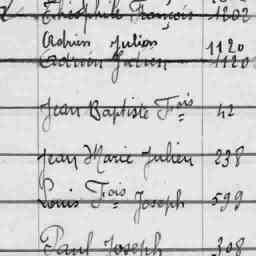 Théophile François 1202
Adrien Julien 1120
Adrien Julien 1120
Jean Baptiste Fois 42
Jean Marie Julien 238
Louis Fois Joseph 599
Paul Joseph 308